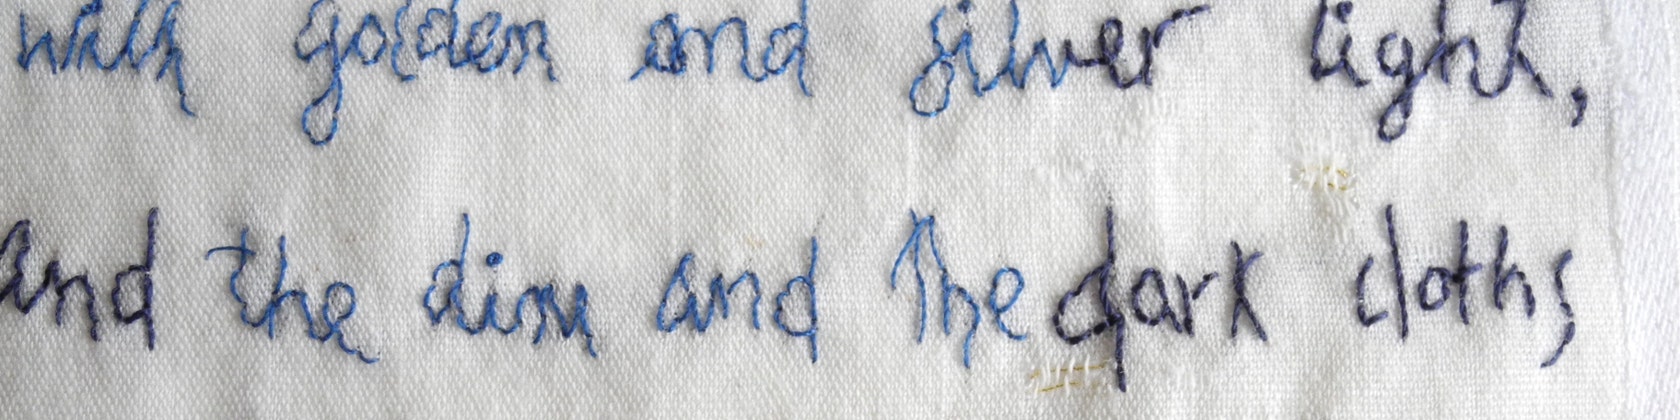 with golden and silver light,
and the dim and the dark cloths